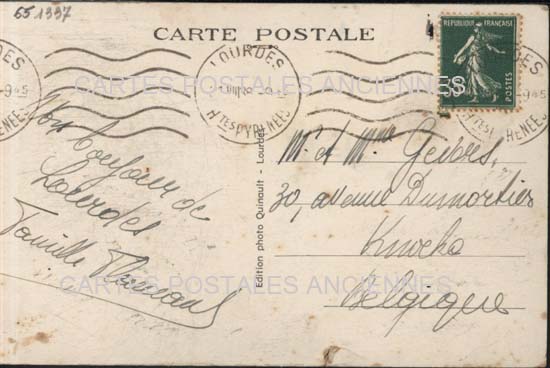 651337
CARTE POSTALE
LOURDES
Htes PYRENEES
REPUBLIQUE FRANÇAISE
POSTES
CARTES POSTALES ANCIENNES
Bonjour de
Lourdes
Famille
Edition photo Quinault - Lourdes
Mr et Mme
30, avenue Dumortier
Knocke
Belgique
CARTES POSTALES ANCIENNES